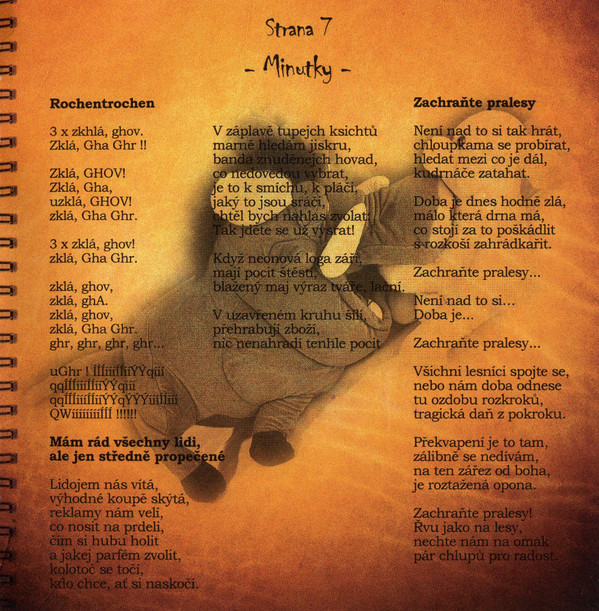 Strana 7
- Minutky -
Rochentrochen
3 x zkhlá, ghov.
Zklá, Gha Ghr !!
Zklá, GHOV!
Zklá, Gha,
uzklá, GHOV!
zklá, Gha Ghr.
3 x zklá, ghov!
zklá, Gha Ghr.
zklá, ghov,
zklá, ghA.
zklá, ghov,
zklá, Gha Ghr.
ghr, ghr, ghr, ghr...
Mám rád všechny lidi,
ale jen středně propečené
Lidojem nás vítá,
výhodné koupě skýtá,
reklamy nám velí,
co nosit na prdeli,
čím si hubu holit
a jakej parfém zvolit,
kolotoč se točí,
kdo chce, ať si naskočí.
V záplavě tupejch ksichtů
marně hledám jiskru,
banda znuděnejch hovad,
co nedovedou vybrat,
je to k smíchu, k pláči,
jaký to jsou sráči,
chtěl bych nahlas zvolat:
Tak jděte se už vysrat!
Když neonová loga září,
mají pocit štěstí,
blažený maj výraz tváře, lační.
V uzavřeném kruhu šílí,
přehrabují zboží,
nic nenahradí tenhle pocit
Zachraňte pralesy
Není nad to si tak hrát,
chloupkama se probírat,
hledat mezi co je dál,
kudrnáče zatahat.
Doba je dnes hodně zlá,
málo která drna má,
co stojí za to poškádlit
s rozkoší zahrádkařit.
Zachraňte pralesy...
Není nad si...
Doba je...
Zachraňte pralesy...
Všichni lesníci spojte se,
nebo nám doba odnese
tu ozdobu rozkroků,
tragická daň z pokroku.
Překvapení je to tam,
zálibně se nedívám,
na ten zářez od boha,
je roztažená opona.
Zachraňte pralesy!
Řvu jako na lesy,
nechte nám na omak
pár chlupů pro radost.